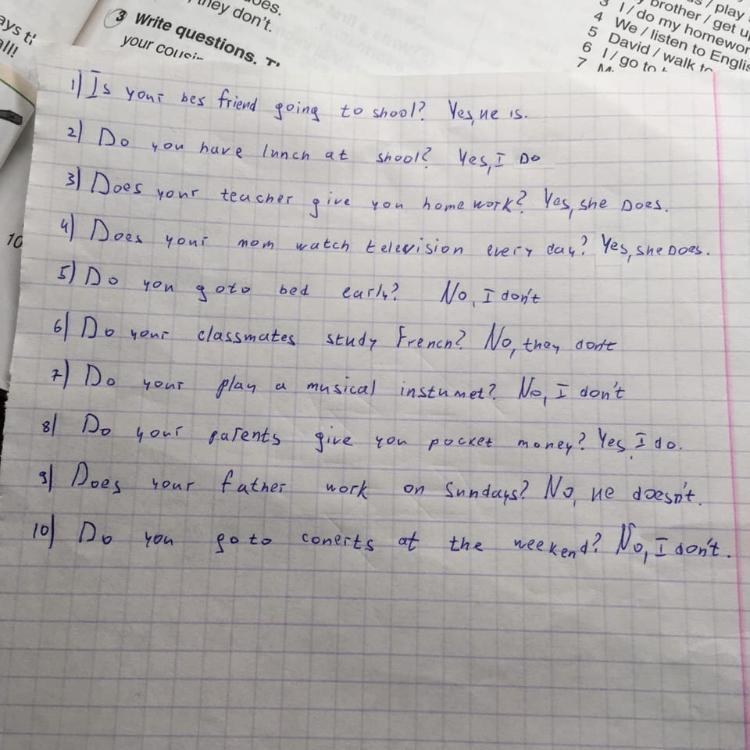 oes.
they don't.
3 Write questions.
your cousin
ays t
all!
s / play
brother / get up
3 I / do my homewor
4 We / listen to Englis
5 David / walk to
6 I / go to
7
10
1) Is your bes friend going to shool? Yes, he is.
2) Do you have lunch at shool? Yes, I Do
3) Does your teacher give you home work? Yes, she Does.
4) Does your mom watch television every day? Yes, she Does.
5) Do you goto bed early? No, I don't
6) Do your classmates study French? No, they dont
7) Do your play a musical instumet? No, I don't
8) Do your parents give you pocket money? Yes, I do.
9) Does your father work on Sundays? No, he doesn't.
10) Do you go to conerts at the weekend? No, I don't.